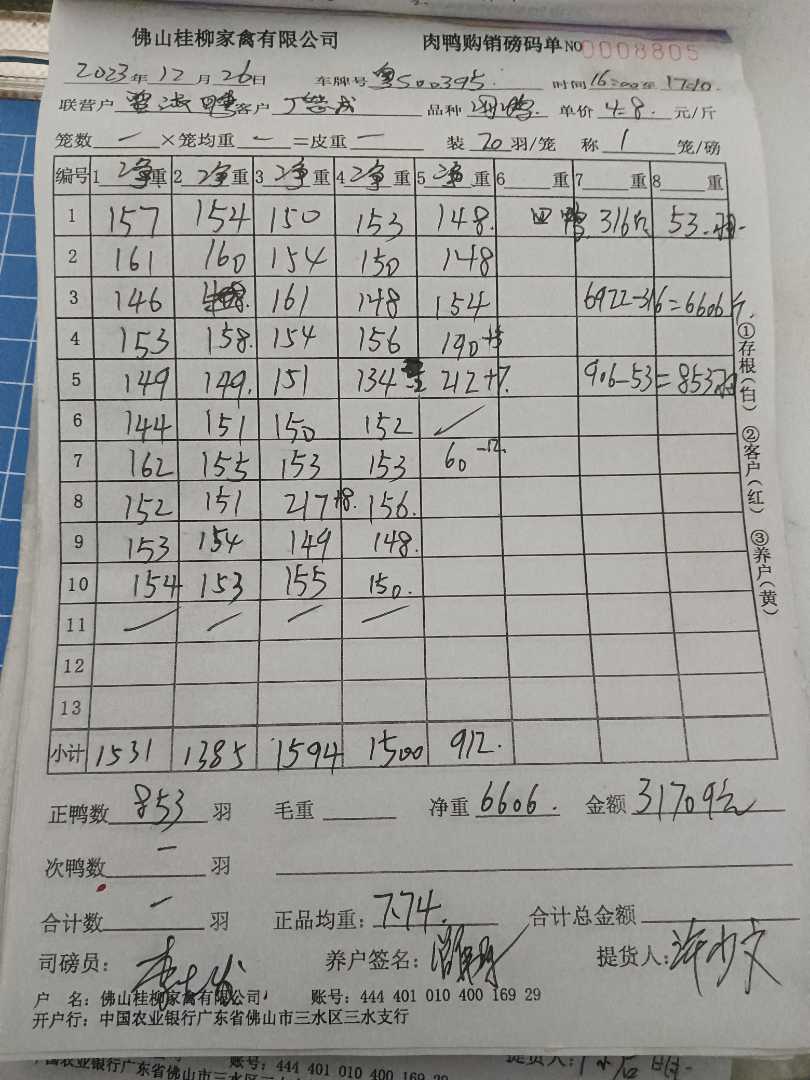 佛山桂柳家禽有限公司 肉鸭购销磅码单 NO 0008805
2023年12月26日 车牌号 粤S00395. 时间16:00至17:10
联营户 客户 品种 单价 4.8. 元/斤
笼数 一 ×笼均重 一 =皮重 一 装 20 羽/笼 称 1 笼/磅
编号 1 净重 2 净重 3 净重 4 净重 5 净重 6 重 7 重 8 重
1 157 154 150 153 148. 鸭 316斤 53羽
2 161 160 154 150 148
3 146 161 148 154 6922-316=6606斤.
4 153 158. 154 156 190+5
5 149 149. 151 134 212+7. 906-53=853羽
6 144 151 150 152 /
7 162 155 153 153 60-12.
8 152 151 217+8. 156.
9 153 154 149 148.
10 154 153 155 150.
11 / / / /
12
13
小计 1531 1385 1594 1500 912.
①存根(白) ②客户(红) ③养户(黄)
正鸭数 853 羽 毛重 净重 6606. 金额 31709元
次鸭数 一 羽
合计数 一 羽 正品均重: 7.74. 合计总金额
司磅员: 养户签名: 提货人: 许少文
户 名: 佛山桂柳家禽有限公司 账号: 444 401 010 400 169 29
开户行: 中国农业银行广东省佛山市三水区三水支行
国农业银行广东省佛山市三 账号: 444 401 010 400 169 29 提货人: